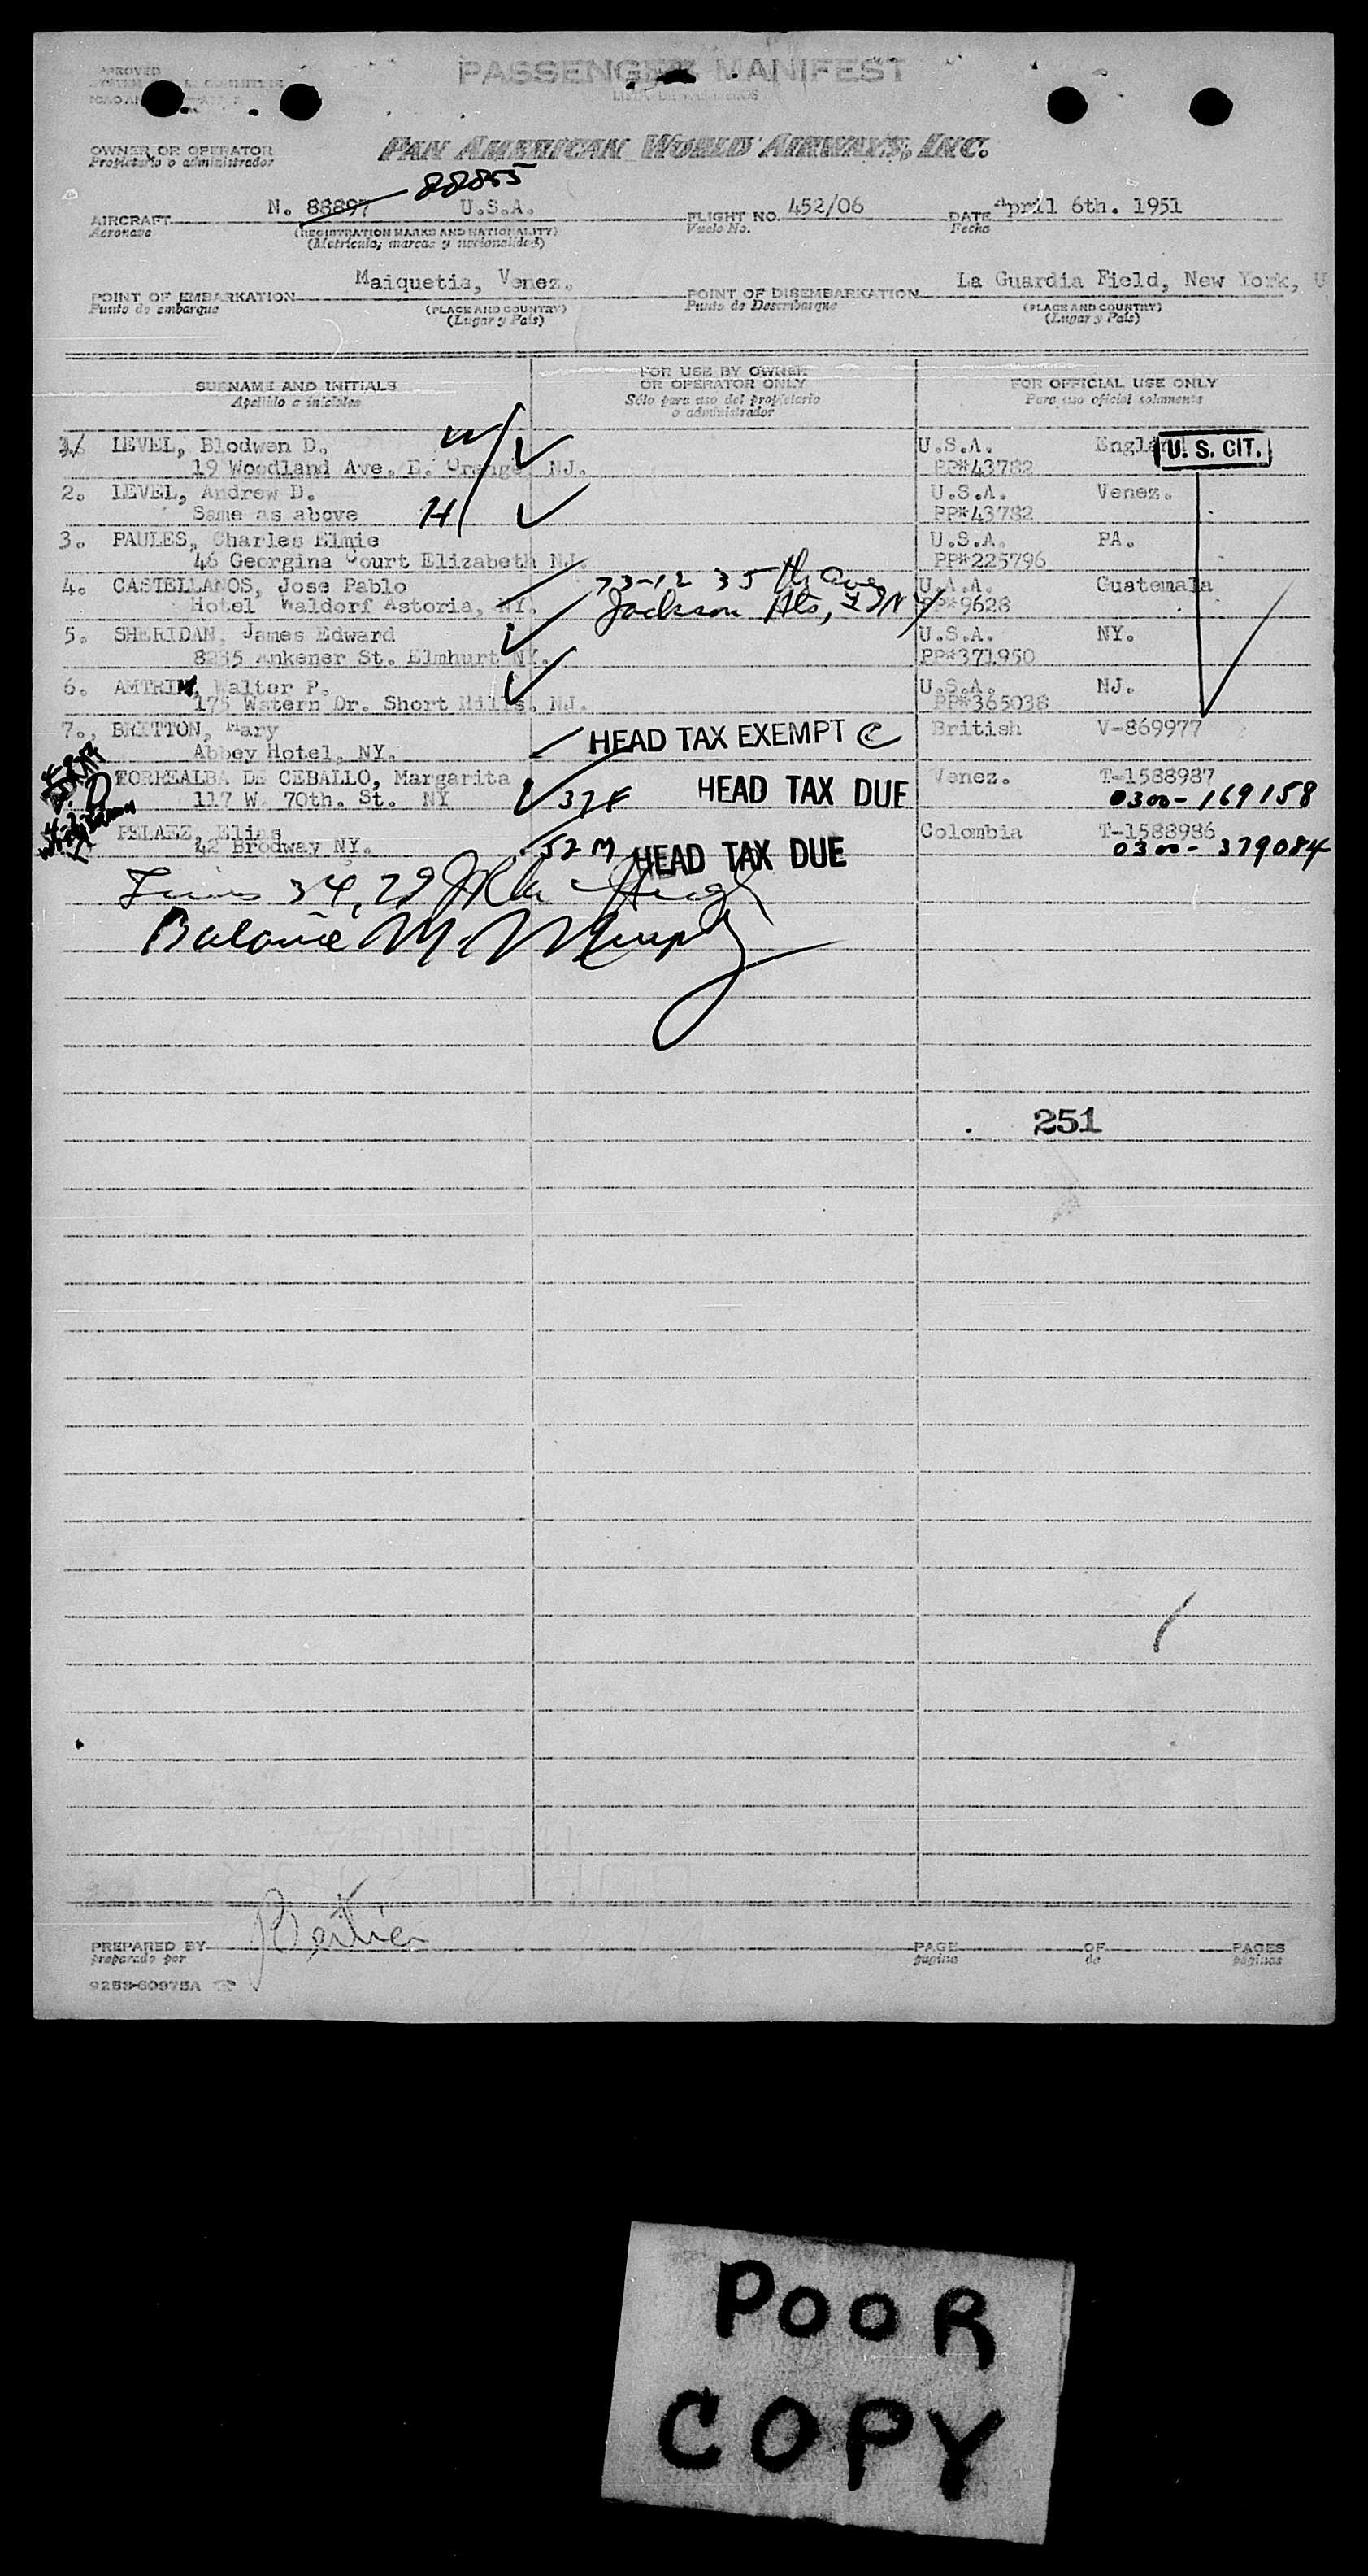 APPROVED
PASSENGER MANIFEST
OWNER OR OPERATOR
Propietario o administrador
PAN AMERICAN WORLD AIRWAYS, INC.
88855
AIRCRAFT N. 88897 U.S.A. FLIGHT NO. 452/06 DATE April 6th. 1951
Aeronave (REGISTRATION MARKS AND NATIONALITY) Vuelo No. Fecha
(Matricula, marcas y nacionalidad)
POINT OF EMBARKATION Maiquetia, Venez. POINT OF DISEMBARKATION La Guardia Field, New York, U
Punto de embarque (PLACE AND COUNTRY) Punto de Desembarque (PLACE AND COUNTRY)
(Lugar y País) (Lugar y País)
SURNAME AND INITIALS FOR USE BY OWNER OR OPERATOR ONLY FOR OFFICIAL USE ONLY
Apellido e iniciales Sólo para uso del propietario o administrador Para uso oficial solamente
LEVEL, Blodwen D. W U.S.A. England U. S. CIT.
19 Woodland Ave. E. Orange, NJ. PP#43782
2. LEVEL, Andrew D. U.S.A. Venez.
Same as above H PP#43782
3. PAULES, Charles Elmie U.S.A. PA.
46 Georgina Court Elizabeth NJ. PP#225796
4. CASTELLANOS, Jose Pablo 73-12 35th Ave U.A.A. Guatemala
Hotel Waldorf Astoria, NY. Jackson Hts, LI NY PP#9628
5. SHERIDAN, James Edward U.S.A. NY.
8235 Ankener St. Elmhurt NY. PP#371950
6. AMTRIM, Walter P. U.S.A. NJ.
175 Wstern Dr. Short Hills, NJ. PP#365038
7. BRITTON, Mary HEAD TAX EXEMPT C British V-869977
Abbey Hotel, NY.
TORREALBA DE CEBALLO, Margarita HEAD TAX DUE Venez. T-1588987
117 W. 70th. St. NY 37F 0300-169158
PELAEZ, Elias Colombia T-1588986
42 Brodway NY. 52 M HEAD TAX DUE 0300-379084
34, 29
M. Murphy
251
PREPARED BY PAGE OF PAGES
preparado por pagina de páginas
9253-60975A
POOR
COPY